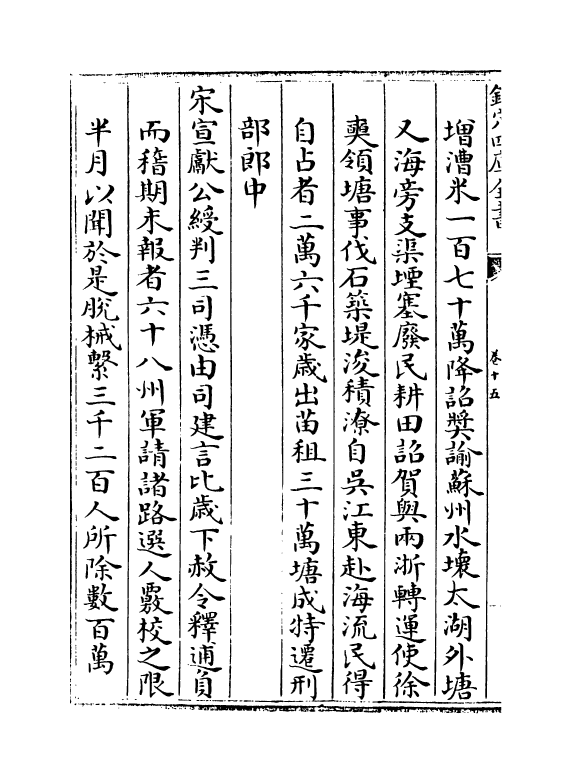 欽定四庫全書
卷十五
增漕米一百七十萬降詔獎諭蘇州水壞太湖外塘
又海旁支渠堙塞廢民耕田詔賀與兩浙轉運使徐
奭領塘事伐石築堤浚積潦自吳江東赴海流民得
自占者二萬六千家歲出苗租三十萬塘成特遷刑
部郎中
宋宣獻公綬判三司憑由司建言比歲下赦令釋逋負
而稽期未報者六十八州軍請諸路選人覈校之限
半月以聞於是脫械繫三千二百人所除數百萬